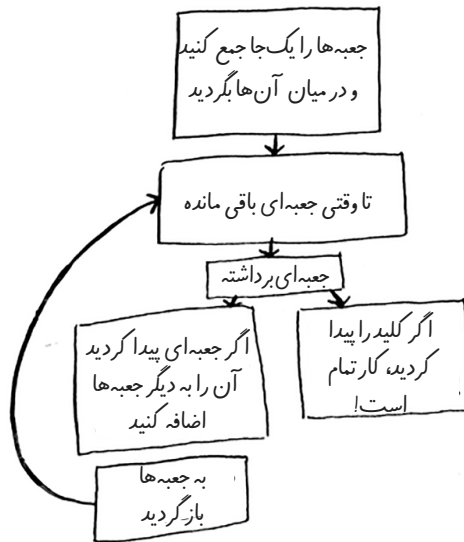 جعبه‌ها را یک‌جا جمع کنید
و در میان آن‌ها بگردید
تا وقتی جعبه‌ای باقی مانده
جعبه‌ای برداشته
اگر جعبه‌ای پیدا کردید
آن را به دیگر جعبه‌ها
اضافه کنید
اگر کلید را پیدا
کردید، کار تمام
است!
به جعبه‌ها
بازگردید